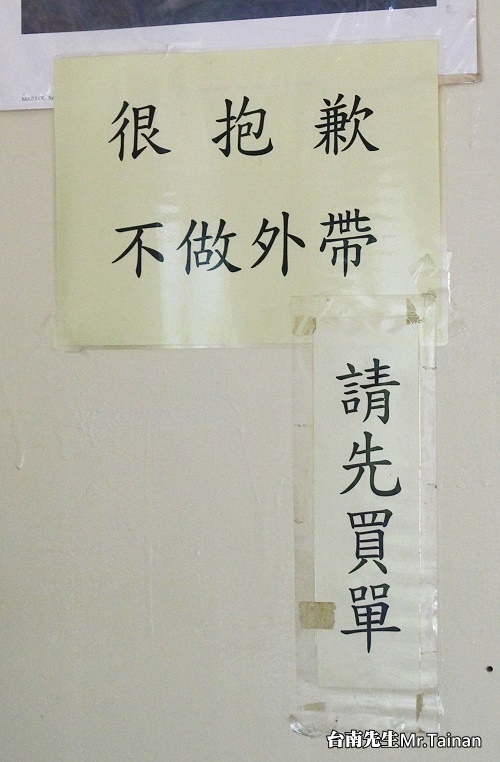 很抱歉
不做外帶
請先買單
台南先生Mr.Tainan